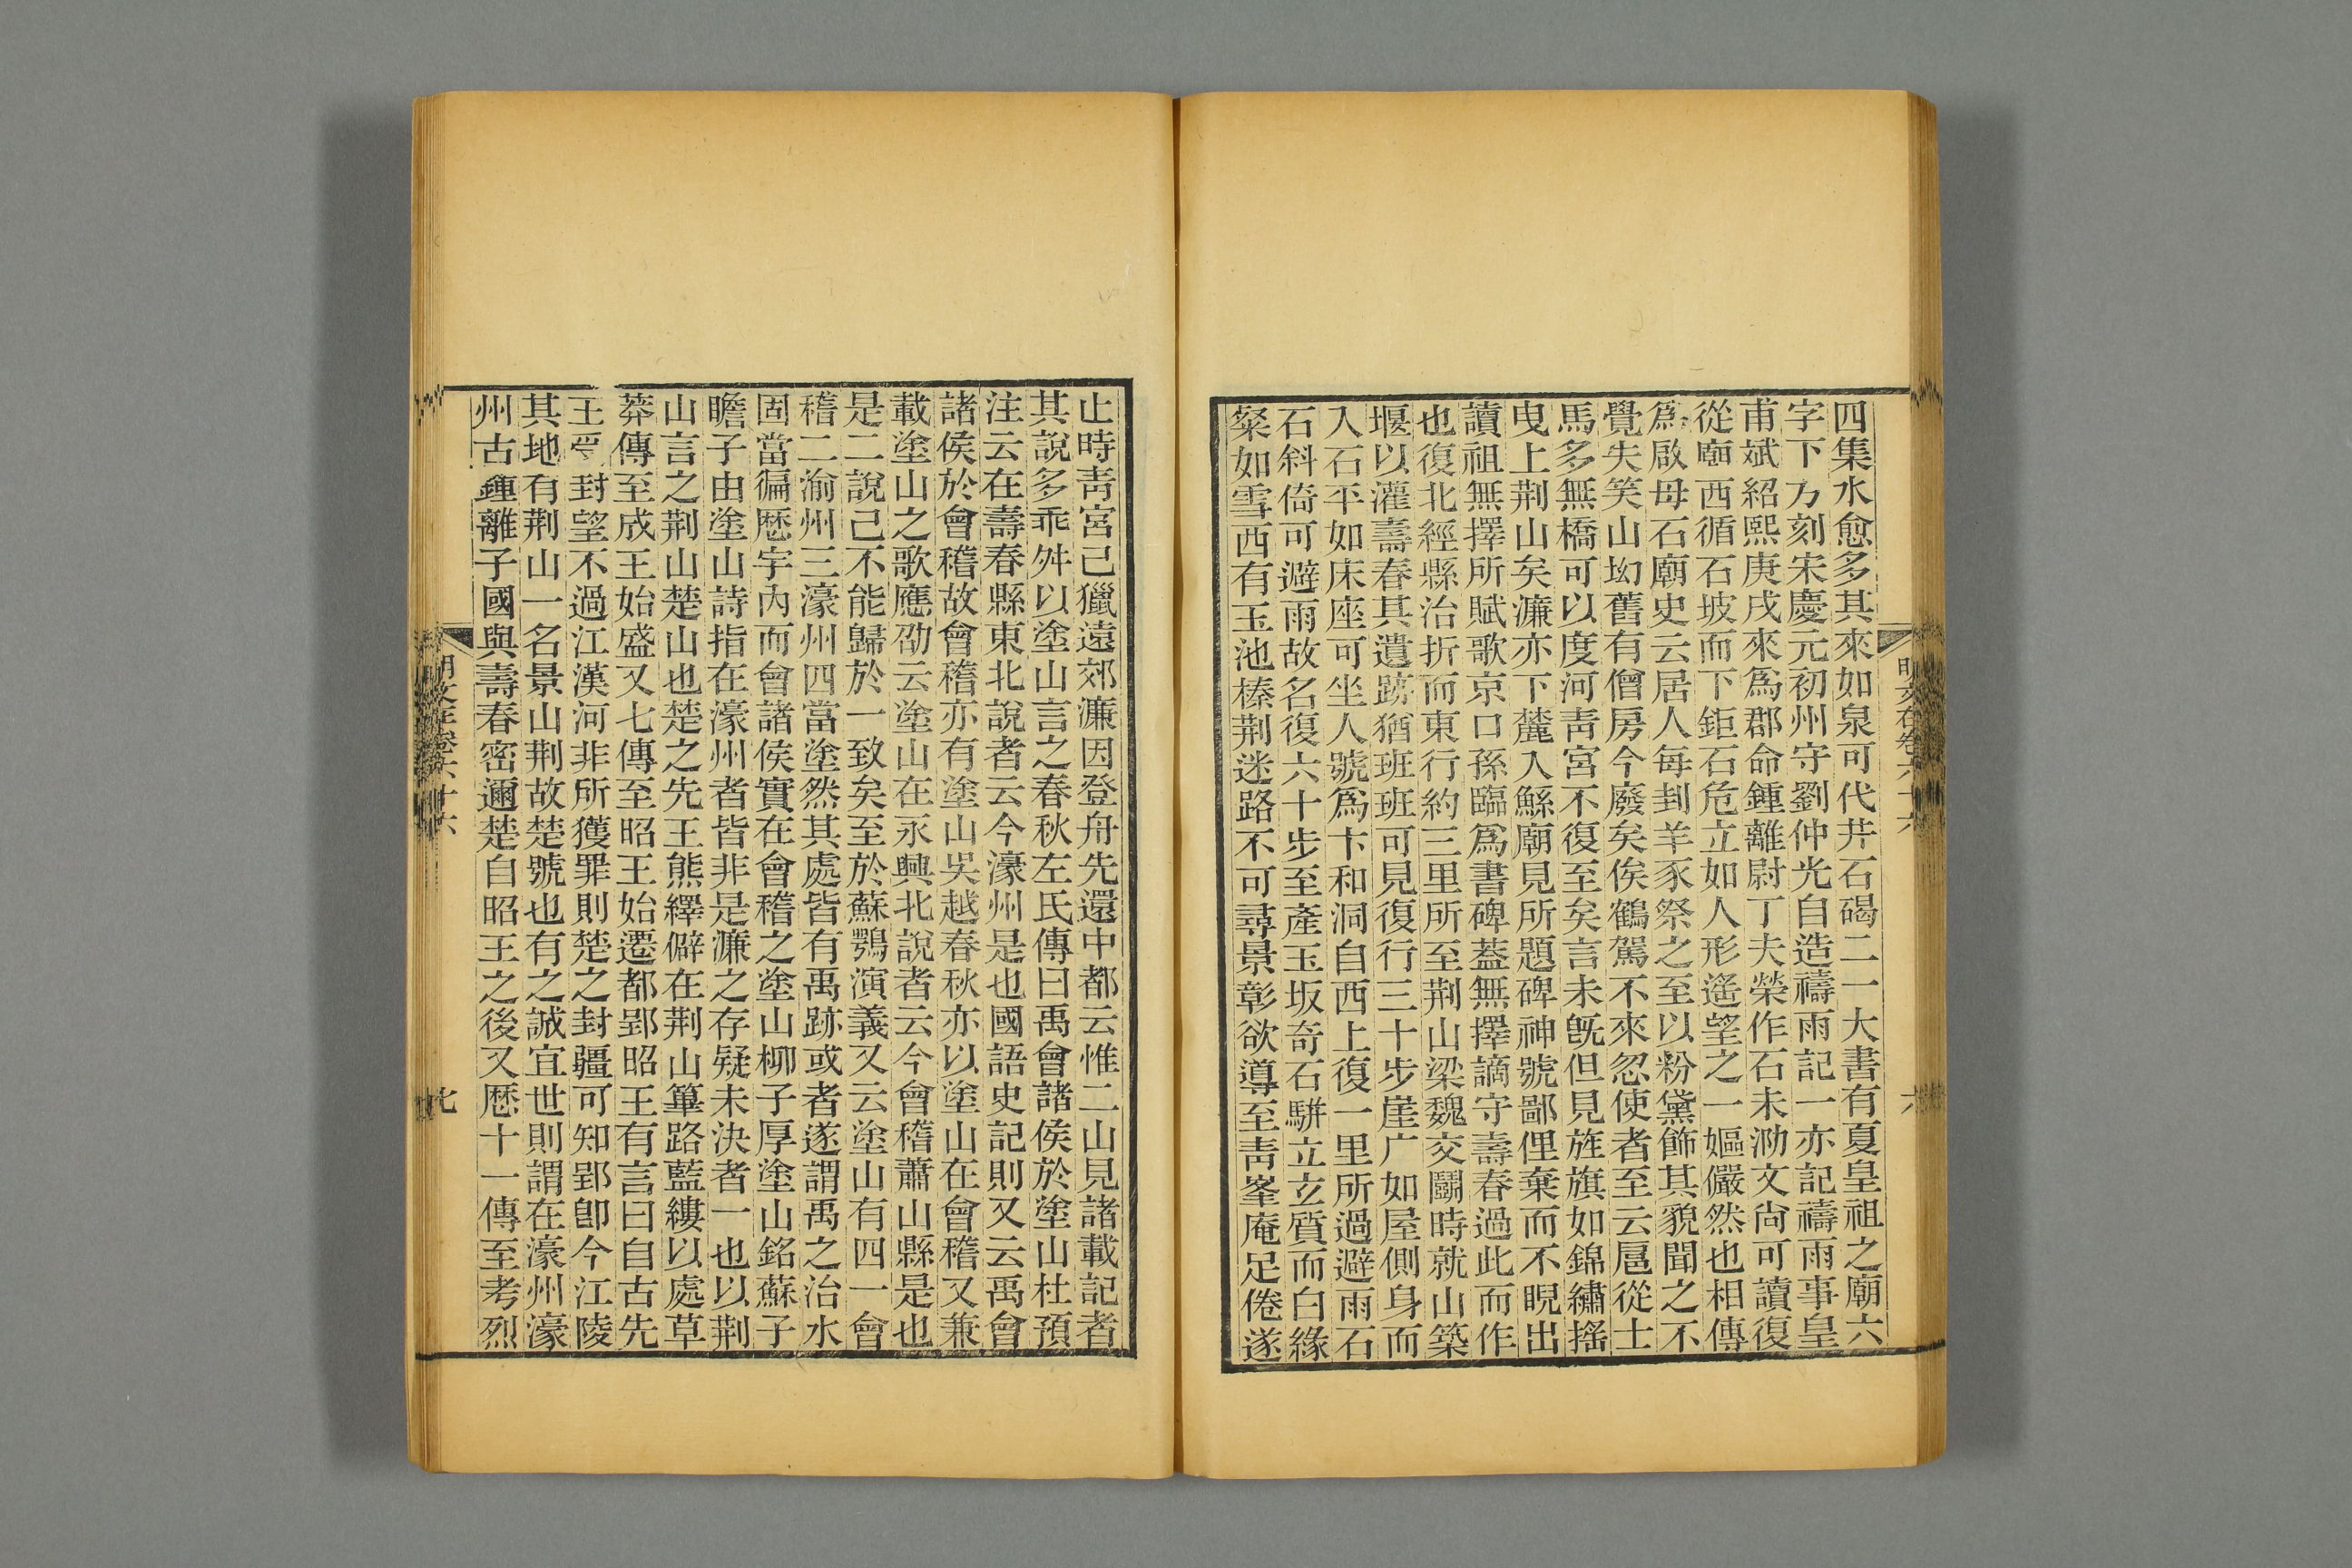 四集水愈多其來如泉可代井石碣二一大書有夏皇祖之廟六
字下方刻宋慶元初州守劉仲光自造禱雨記一亦記禱雨事皇
甫斌紹熙庚戌來爲郡命鍾離尉丁夫榮作石未泐文尙可讀復
從廟西循石坡而下鉅石危立如人形遙望之一嫗儼然也相傳
爲啟母石廟史云居人每刲羊豕祭之至以粉黛飾其貌聞之不
覺失笑山坳舊有僧房今廢矣俟鶴駕不來忽使者至云扈從士
馬多無橋可以度河靑宮不復至矣言未旣但見旌旗如錦繡搖
曳上荆山矣濂亦下麓入鯀廟見所題碑神號鄙俚棄而不睨出
讀祖無擇所賦歌京口孫臨爲書碑蓋無擇謫守壽春過此而作
也復北經縣治折而東行約三里所至荆山梁魏交鬭時就山築
堰以灌壽春其遺跡猶班班可見復行三十步崖广如屋側身而
入石平如床座可坐人號爲卞和洞自西上復一里所過避雨石
石斜倚可避雨故名復六十步至產玉坂奇石駢立玄質而白緣
粲如雪西有玉池榛荆迷路不可尋景彰欲導至靑峯庵足倦遂
明文在卷六十六
六
止時靑宮已獵遠郊濂因登舟先還中都云惟二山見諸載記者
其說多乖舛以塗山言之春秋左氏傳曰禹會諸侯於塗山杜預
注云在壽春縣東北說者云今濠州是也國語史記則又云禹會
諸侯於會稽故會稽亦有塗山吳越春秋亦以塗山在會稽又兼
載塗山之歌應劭云塗山在永興北說者云今會稽蕭山縣是也
是二說已不能歸於一致矣至於蘇鶚演義又云塗山有四一會
稽二渝州三濠州四當塗然其處皆有禹跡或者遂謂禹之治水
固當徧歷宇內而會諸侯實在會稽之塗山柳子厚塗山銘蘇子
瞻子由塗山詩指在濠州者皆非是濂之存疑未決者一也以荆
山言之荆山楚山也楚之先王熊繹僻在荆山篳路藍縷以處草
莽傳至成王始盛又七傳至昭王始遷都郢昭王有言曰自古先
王受封望不過江漢河非所獲罪則楚之封疆可知郢卽今江陵
其地有荆山一名景山荆故楚號也有之誠宜世則謂在濠州濠
州古鍾離子國與壽春密邇楚自昭王之後又歷十一傳至考烈
明文在卷六十六
七